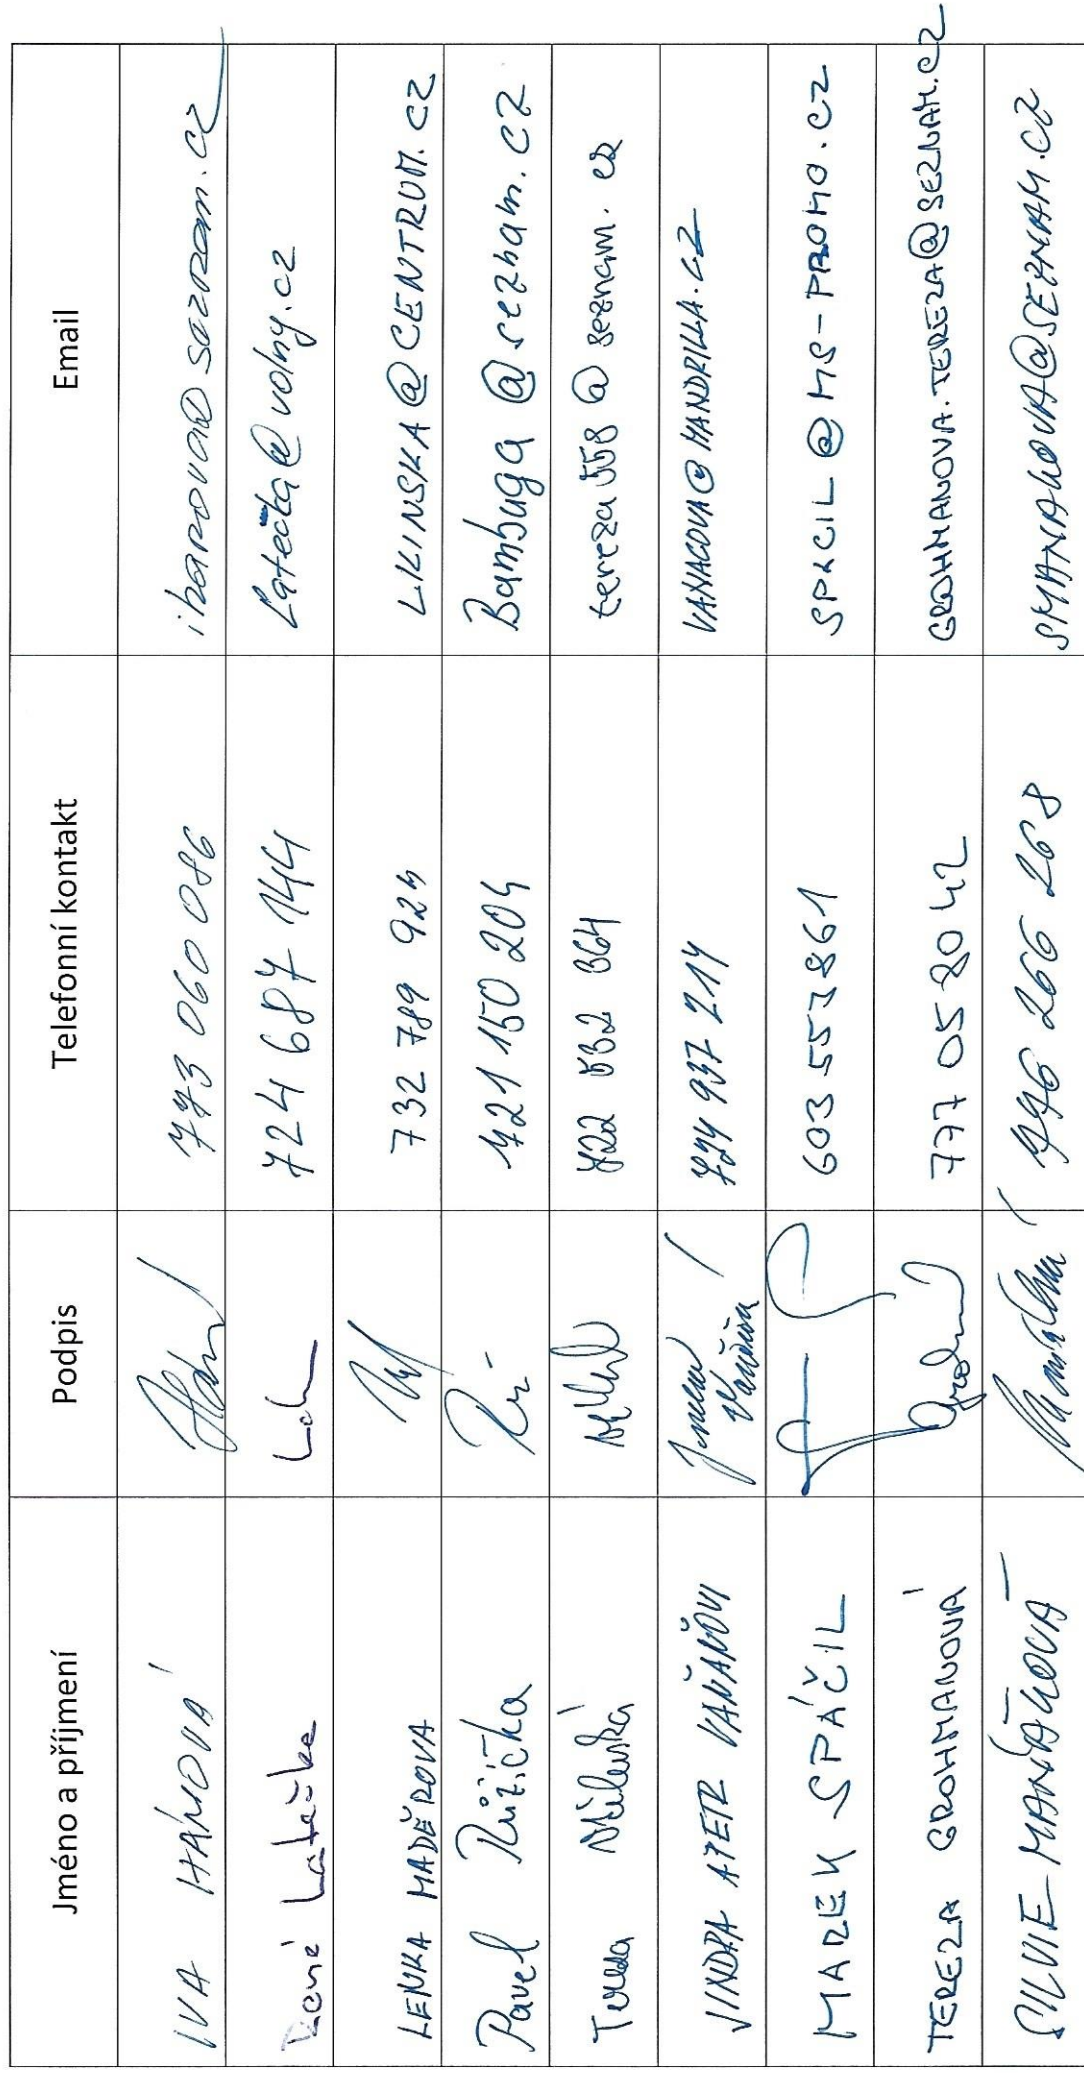 Jméno a příjmení Podpis Telefonní kontakt Email
IVA HÁNOVÁ 773 060 086 ihanova@seznam.cz
René Latečka 724 687 144 Latecka@volny.cz
LENKA MADĚROVA 732 789 924 LKLINSKA@CENTRUM.CZ
Pavel Růžička 721 150 204 Bambuga@seznam.cz
Tereza 722 532 364 tereza558@seznam.cz
JINDRA A PETR VAŇÁČOVI 774 937 214 VANACOVA@MANDRILLA.CZ
MAREK SPÁČIL 603 557 861 SPACIL@MS-PROMO.CZ
TEREZA GROHMANOVÁ 777 05 80 42 GROHMANOVA.TEREZA@SEZNAM.CZ
SILVIE MAŇÁKOVÁ 776 266 268 SMANAKOVA@SEZNAM.CZ